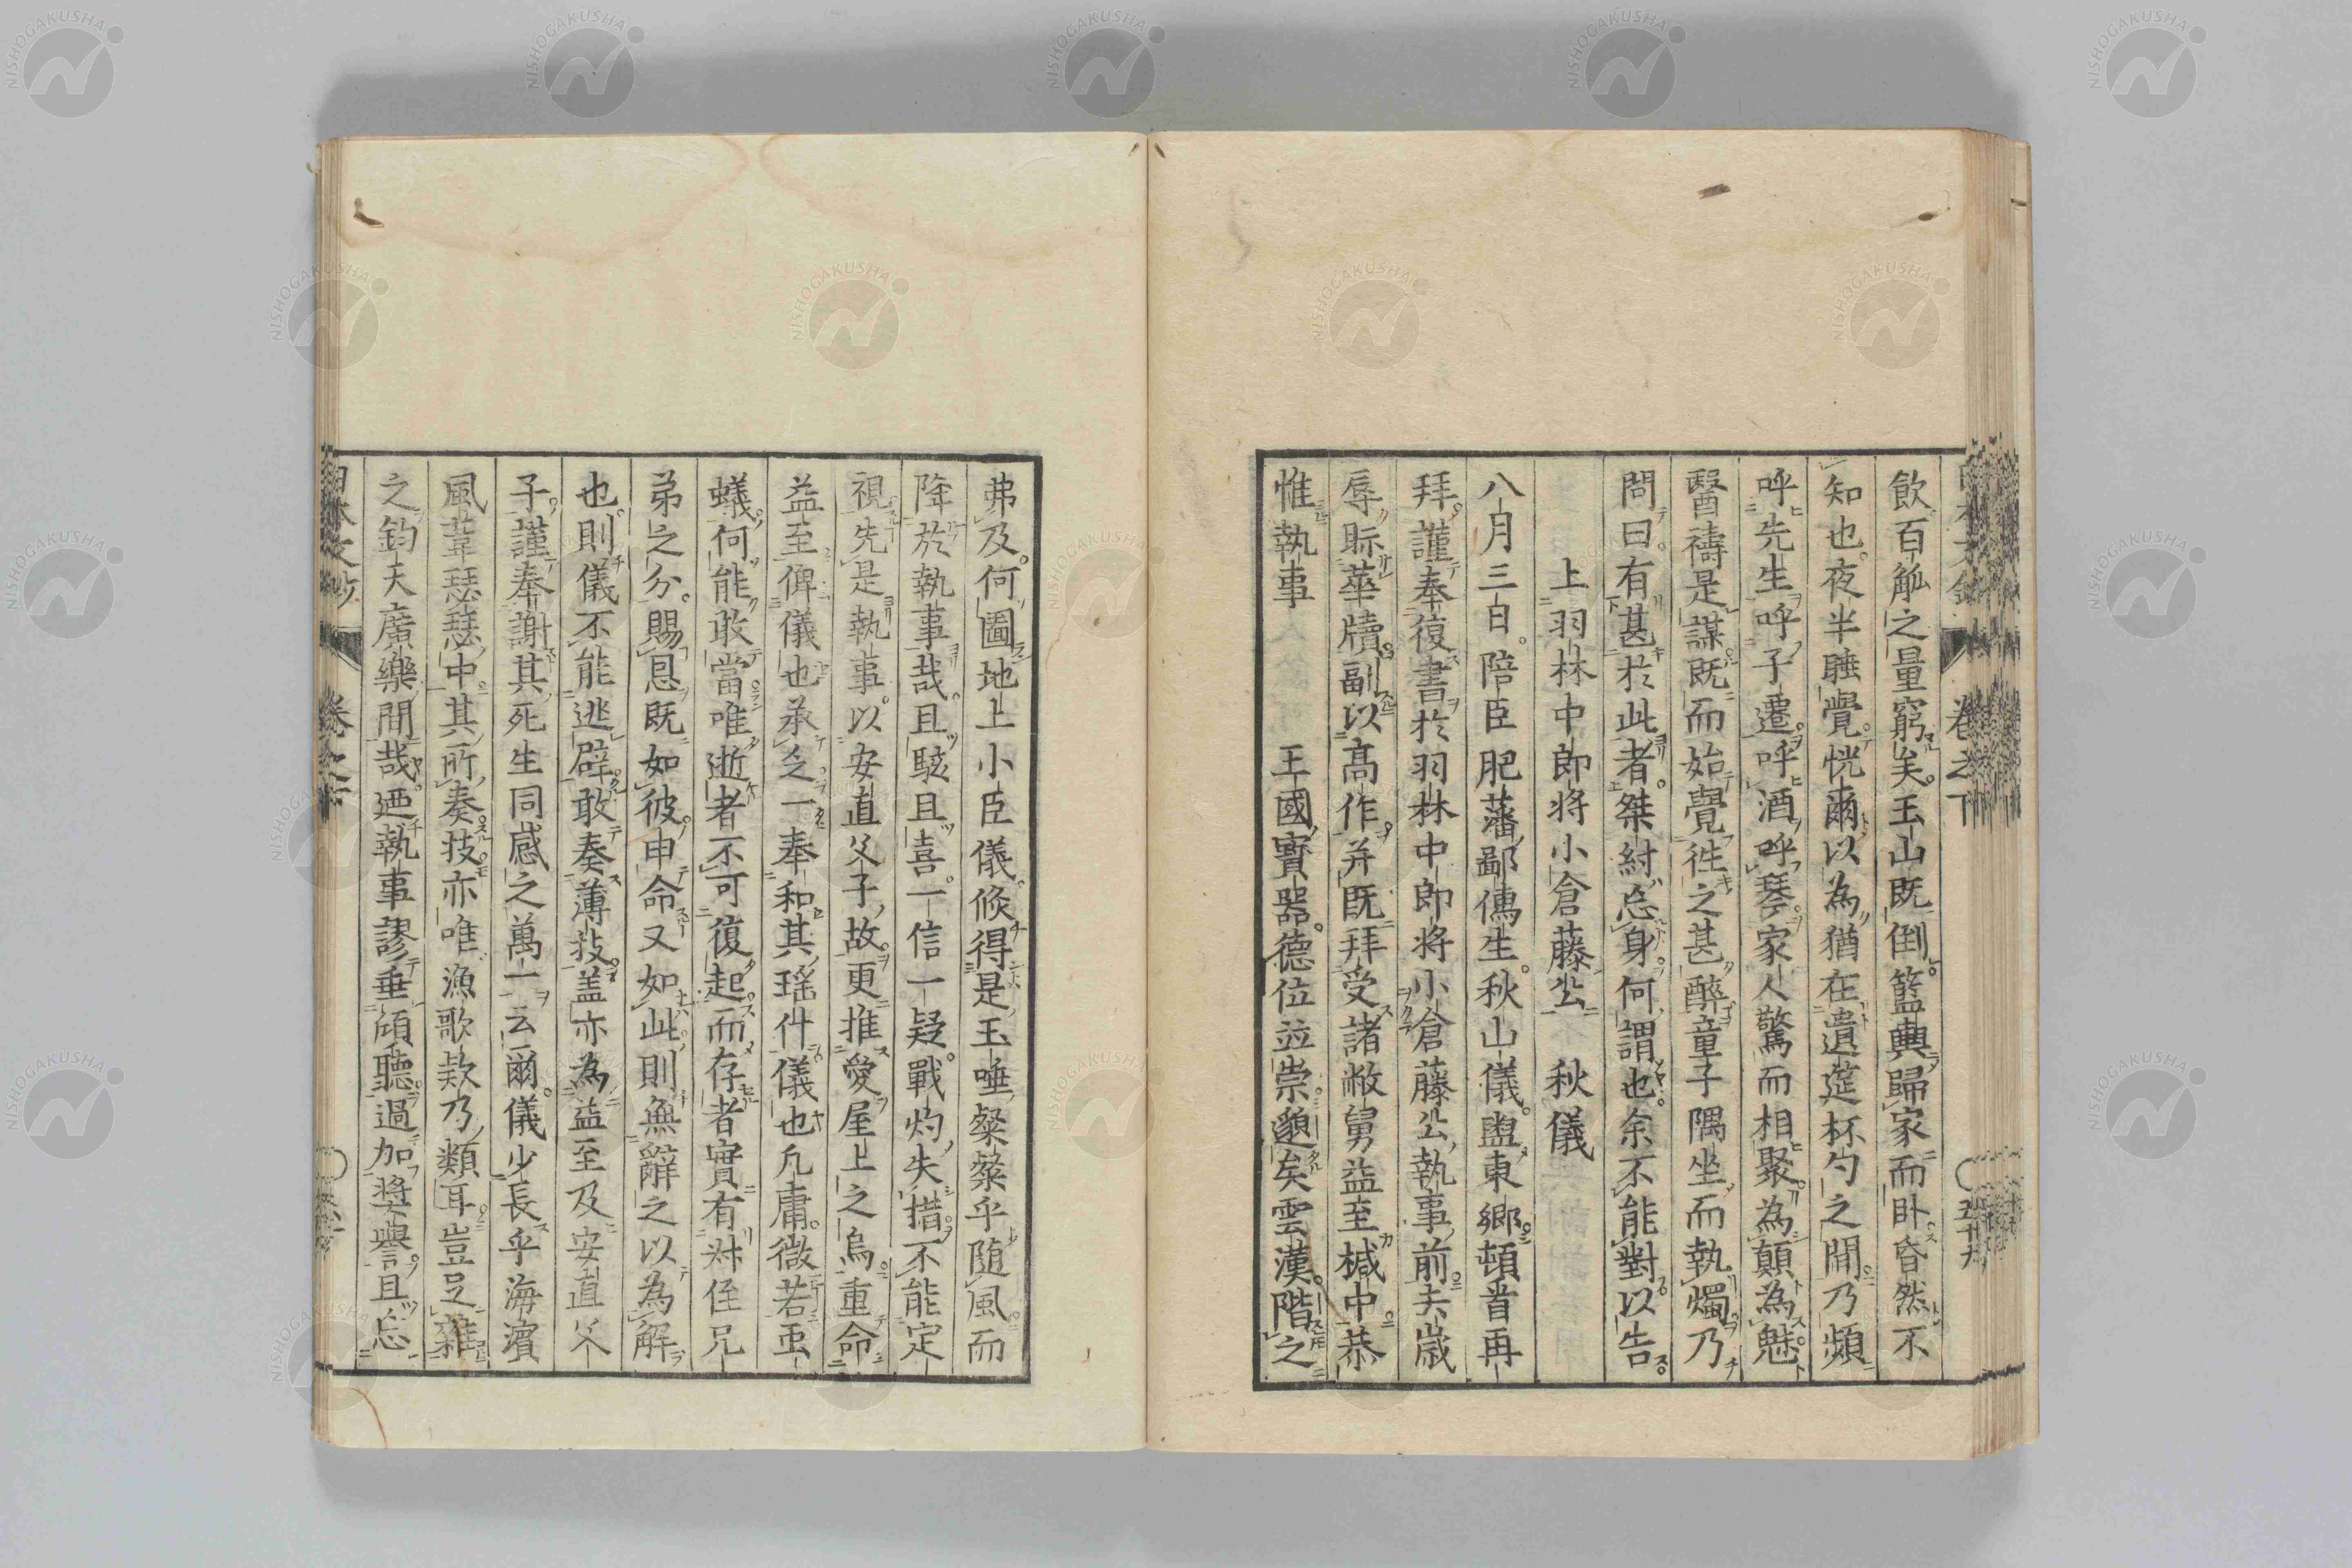 飲百觚之量窮矣玉山既倒籃輿歸家而臥昏然不
知也夜半睡覺恍爾以為猶在遺筵杯勺之間乃頻
呼先生呼子遷呼酒呼琴家人驚而相聚為顛為魅
醫禱是謀既而始覺徃之甚醉童子隅坐而執燭乃
問曰有甚於此者桀紂忘身何謂也余不能對以告
上羽林中郎將小倉藤公　秋儀
八月三日陪臣肥藩鄙儒生秋山儀盥東鄉頓首再
拜謹奉復書於羽林中郎將小倉藤公執事前去歲
辱眎華牘副以高作并既拜受諸敝舅益至椷中恭
惟執事　　王國寶器德位竝崇邈矣雲漢階之
弗及何圖地上小臣儀倐得是玉唾粲粲乎隨風而
降於執事哉且駭且喜一信一疑戰灼失措不能定
視先是執事以安直父子故更推愛屋上之烏重命
益至俾儀也承乏一奉和其瑤什儀也凡庸微若䖝
蟻何能敢當唯逝者不可復起而存者實有叔侄兄
弟之分賜恩既如彼申命又如此則無辭之以為解
也則儀不能逃辟敢奏薄技蓋亦為益至及安直父
子謹奉謝其死生同感之萬一云爾儀少長乎海濱
風葦瑟瑟中其所奏技亦唯漁歌欵乃類耳豈足雜
之鈞天廣樂間哉迺執事謬垂頎聽過加奬譽且忘
卷之下
五十九
NISHOGAKUSHA